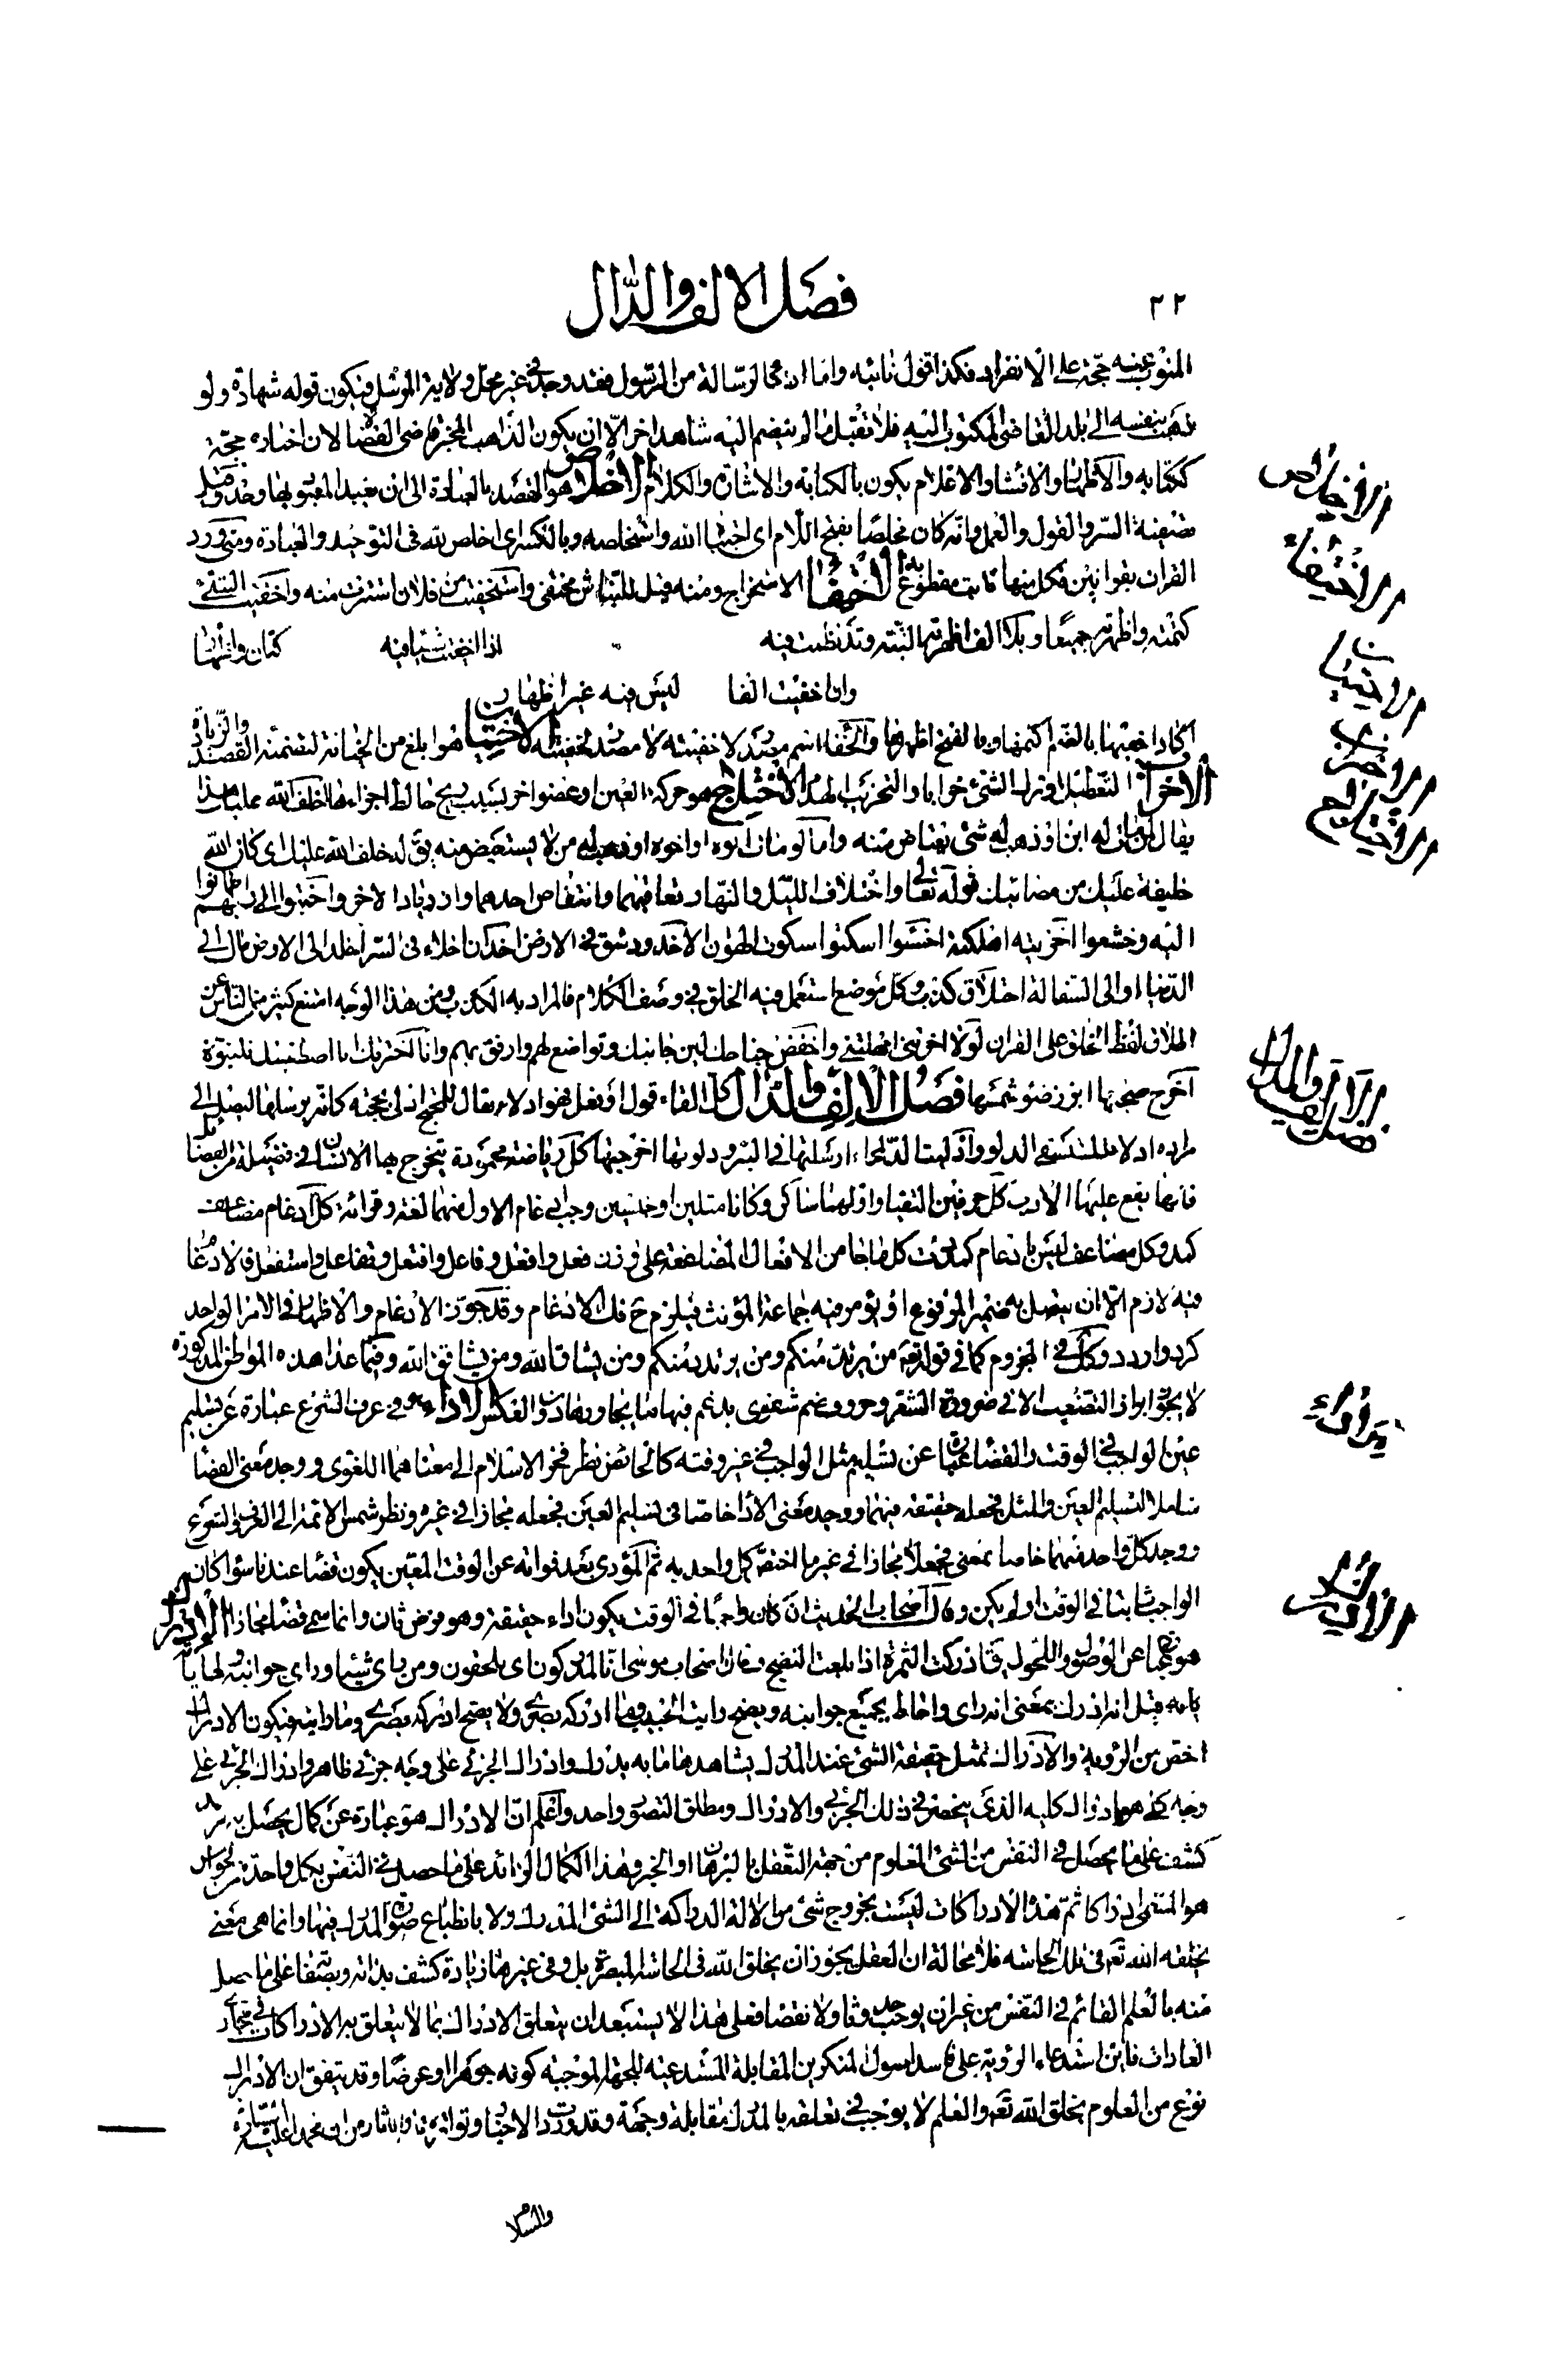 ٢٢
فصل الالف والدال
المنوب عنه حجة على الانفراد فكذا قول نائبه واما اذا ادعى الرسالة من الرسول فقد وجد في غير محل ولاية المرسل فيكون قوله شهادة ولو
ذهب بنفسه الى بلد القاضي المكتوب اليه فلا تقبل ما لم ينضم اليه شاهد اخر الا ان يكون الذاهب المخبر قاضي القضاة لان اخباره حجة
ككتابه والاظهار والافشاء والاعلام يكون بالكتابة والاشارة والكلام الاخلاص هو القصد بالعبادة الى ان يعبد المعبود بها وحده وقيل
تصفية السر والقول والعمل وانه كان مخلصا بفتح اللام اي اجتباه الله واستخلصه وبالكسر اي اخلص لله في التوحيد والعبادة ومتى ورد
القران بقراءتين فكل منهما ثابت مقطوع به الاختفاء الاستخراج ومنه قيل للنباش مختفي واستخفيت من فلان استترت منه واخفيت الشيء
كتمته واظهرته جميعا وبلا الف اظهرته البتة وقد نظمت فيه
اذا اخفيت شيئا فيه
كتمان واظهار
وان اخفيت الفا
ليس فيه غير اظهار
اكاد اخفيها بالضم اكتمها وبالفتح اظهرها والخفاء اسم مصدر لاخفيته لا مصدر لخفيته الاختيان هو ابلغ من الخيانة لتضمنه القصد والزيادة
الاخراب التعطيل او ترك الشيء خرابا والتخريب الهدم الاختلاج هو حركة العين او عضو اخر بسبب ريح خالط اجزاءها اخلف الله عليك هذا
يقال لمن مات له ابن او ذهب له شيء يعتاض منه واما لو مات ابوه او اخوه او ذهب له من لا يستعيض منه يق له خلف الله عليك اي كان الله
خليفة عليك من مصائبك قوله تعالى واختلاف الليل والنهار تعاقبهما وانتقاص احدهما وازدياد الاخر واخبتوا الى ربهم اطمانوا
اليه وخشعوا اخزيته اهلكته اخسئوا اسكتوا سكوت الهوان الاخدود شق في الارض اخدان اخلاء في السر اخلد الى الارض مال الى
الدنيا او الى السفالة اختلاق كذب وكل موضع استعمل فيه الخلق في وصف الكلام فالمراد به الكذب ومن هذا الوجه امتنع كثير من الناس عن
اطلاق لفظ الخلق على القران لولا اخرتني امهلتني واخفض جناحك لين جانبك وتواضع لهم وارفق بهم وانا اخترتك اصطفيتك للنبوة
اخرج ضحيها ابرز ضوء شمسها فصل الالف والدال كل القاء قول او فعل فهو ادلاء يقال للمحتج ادلى بحجته كانه يرسلها ليصل الى
مراده ادلاء المستسقي الدلو وادليت الدلو ارسلتها في البئر ودلوتها اخرجتها كل رياضة محمودة يتخرج بها الانسان في فضيلة من الفضائل
فانها يقع عليها الادب كل حرفين التقيا واولهما ساكن وكانا مثلين او جنسين وجب ادغام الاول منهما لغة وقراءة كل ادغام مضاعف
كمد وكل مضاعف ليس بادغام كمددت كل ما جاء من الافعال المضاعفة على وزن فعل وافعل وفاعل وافتعل وتفاعل واستفعل فالادغام
فيه لازم الا ان يتصل به ضمير المرفوع او يؤمر فيه جماعة المؤنث فيلزم ح فك الادغام وقد جوز الادغام والاظهار في الامر الواحد
كرد واردد وكذا في المجزوم كما في قوله تعه من يرتد منكم ومن يرتدد منكم ومن يشاق الله ومن يشاقق الله وفيما عدا هذه المواطن المذكورة
لا يجوز ابراز التضعيف الا في ضرورة الشعر وحروف ضم شفوي يدغم فيها ما يجاورها دون العكس الاداء هو في عرف الشرع عبارة عن تسليم
عين الواجب في الوقت والقضاء عبارة عن تسليم مثل الواجب في غير وقته كالحائض نظر فخر الاسلام الى معناهما اللغوي ووجد معنى القضاء
شاملا لتسليم العين والمثل فجعله حقيقة فيهما ووجد معنى الاداء خاصا في تسليم العين فجعله مجازا في غيره ونظر شمس الائمة الى العرف والشرع
ووجد كل واحد منهما خاصا بمعنى فجعلا مجازا في غير ما اختص كل واحد به ثم المؤدى بعد فواته عن الوقت المعين يكون قضاء عندنا سواء كان
الواجب ثابتا في الوقت او لم يكن وقال اصحاب الحديث ان كان واجبا في الوقت يكون اداء حقيقة وهو فرض ثان وانما سمي قضاء مجازا الادراك
هو عبارة عن الوصول واللحوق يق ادركت الثمرة اذا بلغت النضج وقال اصحاب موسى انا لمدركون اي ملحقون ومن راى شيئا وراى جوانبه ونهاياته
قيل انه ادرك بمعنى انه راى واحاط بجميع جوانبه ويصح رايت الحبيب وما ادركه بصري ولا يصح ادركه بصري وما رايته فيكون الادراك
اخص من الرؤية والادراك تمثل حقيقة الشيء عند المدرك يشاهدها ما به يدرك وادراك الجزئي على وجه جزئي ظاهر وادراك الجزئي على
وجه كلي هو ادراك كليه الذي ينحصر في ذلك الجزئي والادراك ومطلق التصور واحد واعلم ان الادراك هو عبارة عن كمال يحصل به مزيد
كشف على ما يحصل في النفس من الشيء المعلوم من جهة التعقل بالبرهان او الخبر وهذا الكمال الزائد على ما حصل في النفس بكل واحدة من الحواس
هو المسمى ادراكا ثم هذه الادراكات ليست بخروج شيء من الالة الدراكة الى الشيء المدرك ولا بانطباع صورة المدرك فيها وانما هي معنى
يخلقه الله تعه في تلك الحاسة فلا محالة ان العقل يجوز ان يخلق الله في الحاسة المبصرة بل وفي غيرها زيادة كشف بذاته وبصفاته على ما حصل
منه بالعلم القائم في النفس من غير ان يوجب حدوثا ولا نقصا فعلى هذا لا يستبعد ان يتعلق الادراك بما لا يتعلق به الادراكات في مجاري
العادات فاين استدعاء الرؤية على فاسد اصول المنكرين المقابلة المستدعية للجهة الموجبة كونه جوهرا او عرضا وقد يتفق ان الادراك
نوع من العلوم يخلق الله تعه والعلم لا يوجب في تعلقه بالمدرك مقابلة وجهة وقد وردت الاخبار وتواترت الاثار من ان محمدا عليه
والسلام
الاخلاص
الاختفاء
الاختيان
الاخراب
الاختلاج
فصل الالف والدال
الاداء
الادراك